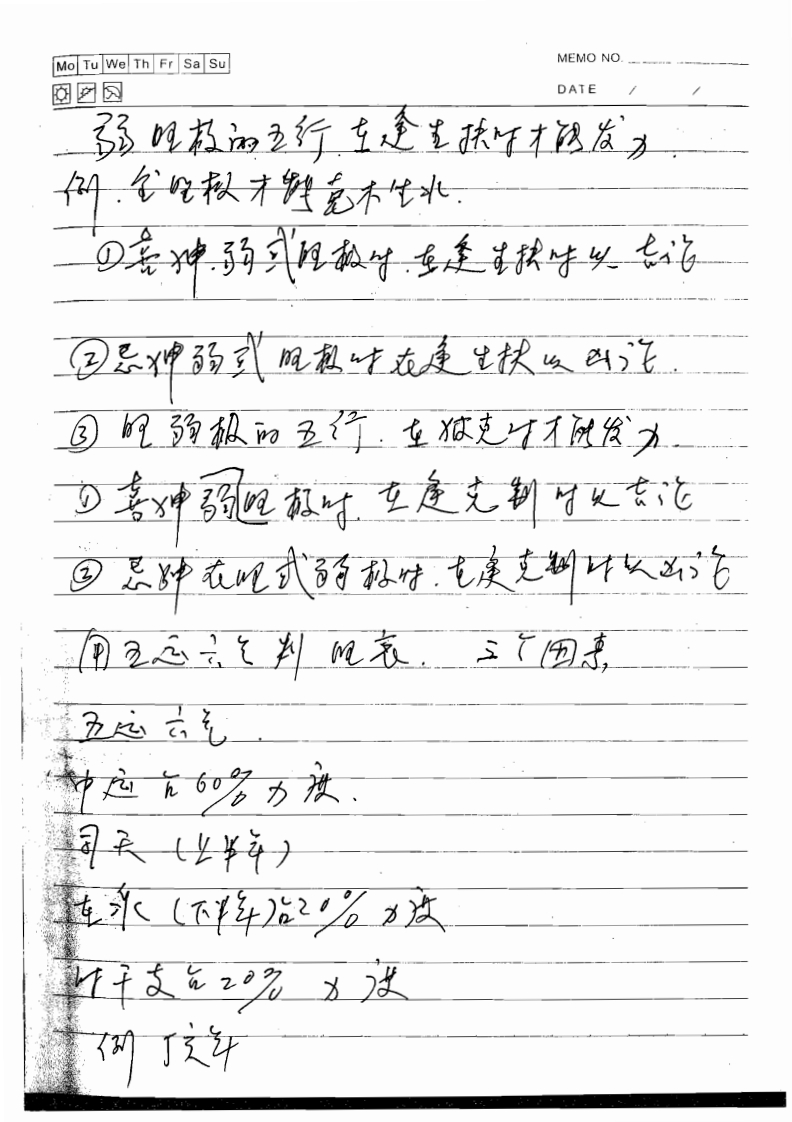 Mo Tu We Th Fr Sa Su
MEMO NO.
DATE / /
弱旺极的五行.在逢生扶时才能发力.
例.金旺极才能克木生水.
①喜神.弱或旺极时.在逢生扶时以吉论
②忌神弱或旺极时在逢生扶以凶论.
③旺弱极的五行.在被克时才能发力.
①喜神弱旺极时.在逢克制时以吉论
②忌神在旺或弱极时.在逢克制时以凶论
用五运六气判旺衰. 三个因素
五运六气.
中运占60%力度.
司天(上半年)
在泉(下半年)占20%力度
时干支占20%力度
例丁亥年